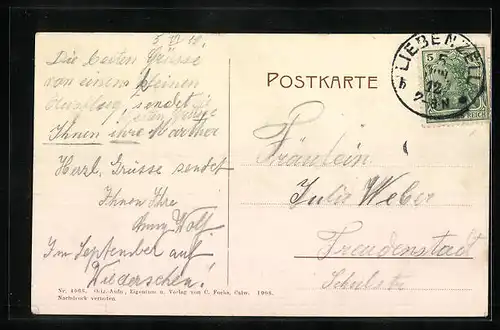 5. VI 12.
Die besten Grüsse
von einem kleinen
Ausflug, sendet
Ihnen ihre Martha
Herzl. Grüsse sendet
Ihnen Ihre
Anny Wolf
Im September auf
Wiedersehen!
Nr. 4003. Orig.-Aufn., Eigentum u. Verlag von C. Fuchs, Calw. 1908.
Nachdruck verboten.
POSTKARTE
LIEBENZELL
5
12
7-8 N
Fräulein
Julie Weber
Freudenstadt
Schulstr